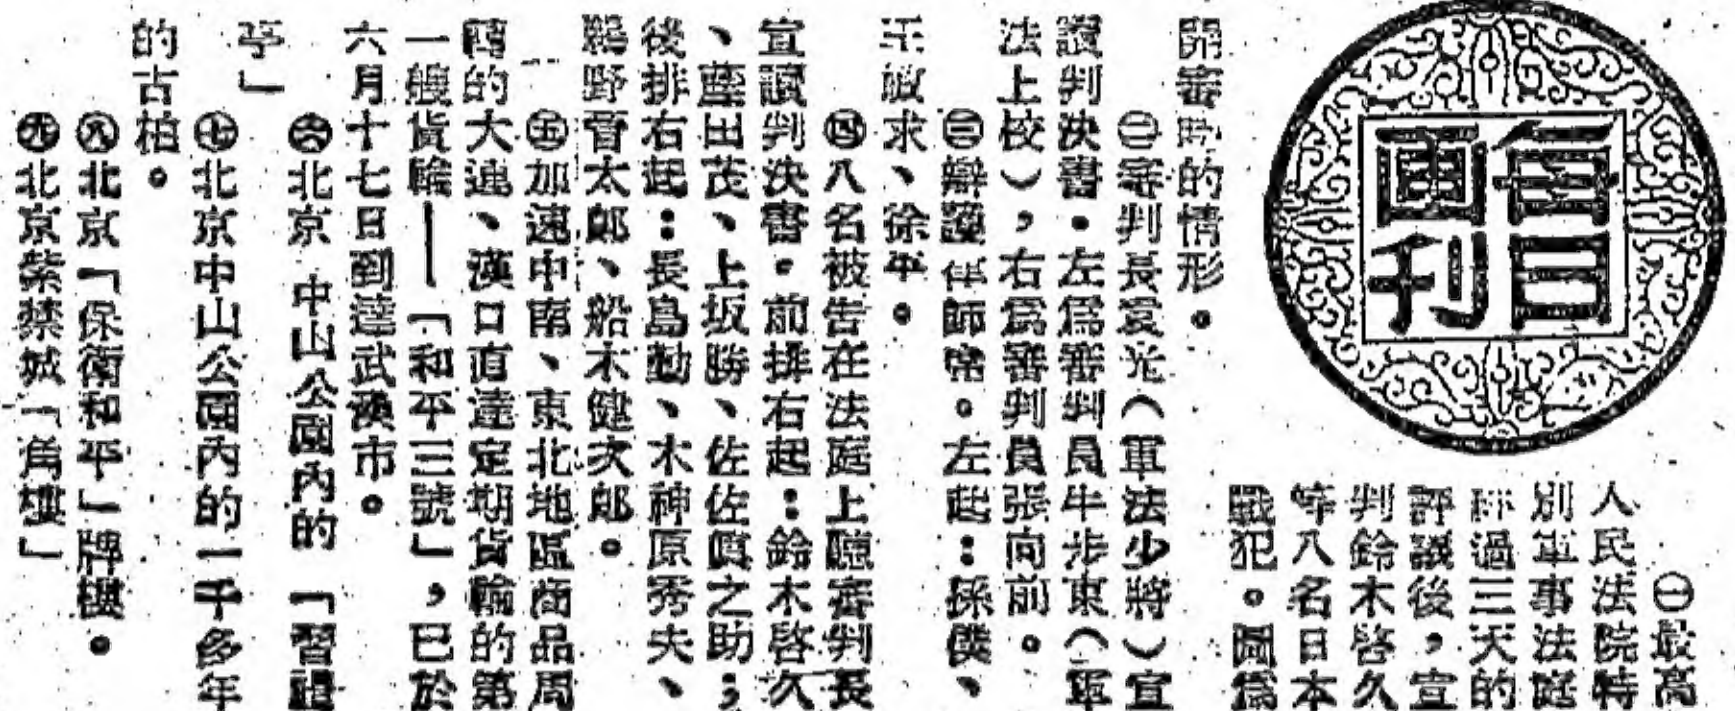 每日
画刊
㊀最高
人民法院特
別軍事法庭
經過三天的
評議後，宣
判鈴木啓久
等八名日本
戰犯。圖爲
開審時的情形。
㊁審判長袁光（軍法少將）宣
讀判決書。左爲審判員牛步東（軍
法上校），右爲審判員張向前。
㊂辯護律師席。左起：孫僕、
王敏求、徐平。
㊃八名被告在法庭上聽審判長
宣讀判決書。前排右起：鈴木啓久
、藤田茂、上坂勝、佐佐眞之助；
後排右起：長島勤、木神原秀夫、
鵜野晋太郎、船木健次郎。
㊄加速中南、東北地區商品周
轉的大連、漢口直達定期貨輪的第
一艘貨輪——「和平三號」，已於
六月十七日到達武漢市。
㊅北京中山公園內的「習禮
亭」
㊆北京中山公園內的一千多年
的古柏。
㊇北京「保衛和平」牌樓。
㊈北京紫禁城「角樓」